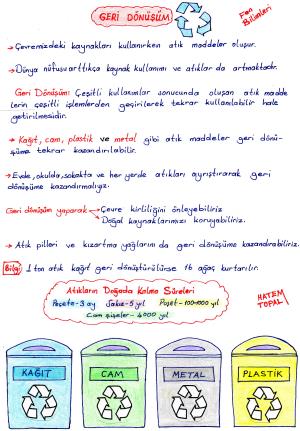 GERİ DÖNÜŞÜM
Fen
Bilimleri
→ Çevremizdeki kaynakları kullanırken atık maddeler oluşur.
→ Dünya nüfusu arttıkça kaynak kullanımı ve atıklar da artmaktadır.
Geri Dönüşüm: Çeşitli kullanımlar sonucunda oluşan atık madde
lerin çeşitli işlemlerden geçirilerek tekrar kullanılabilir hale
getirilmesidir.
→ Kağıt, cam, plastik ve metal gibi atık maddeler geri dönü-
şüme tekrar kazandırılabilir.
→ Evde, okulda, sokakta ve her yerde atıkları ayrıştırarak geri
dönüşüme kazandırmalıyız.
Geri dönüşüm yaparak → Çevre kirliliğini önleyebiliriz
Doğal kaynaklarımızı koruyabiliriz.
→ Atık pilleri ve kızartma yağlarını da geri dönüşüme kazandırabiliriz.
Bilgi: 1 ton atık kağıt geri dönüştürülürse 16 ağaç kurtarılır.
Atıkların Doğada Kalma Süreleri
Peçete-3 ay Sakız-5 yıl Poşet-1000 yıl
Cam şişeler-4000 yıl
HATEM
TOPAL
KAĞIT
CAM
METAL
PLASTİK